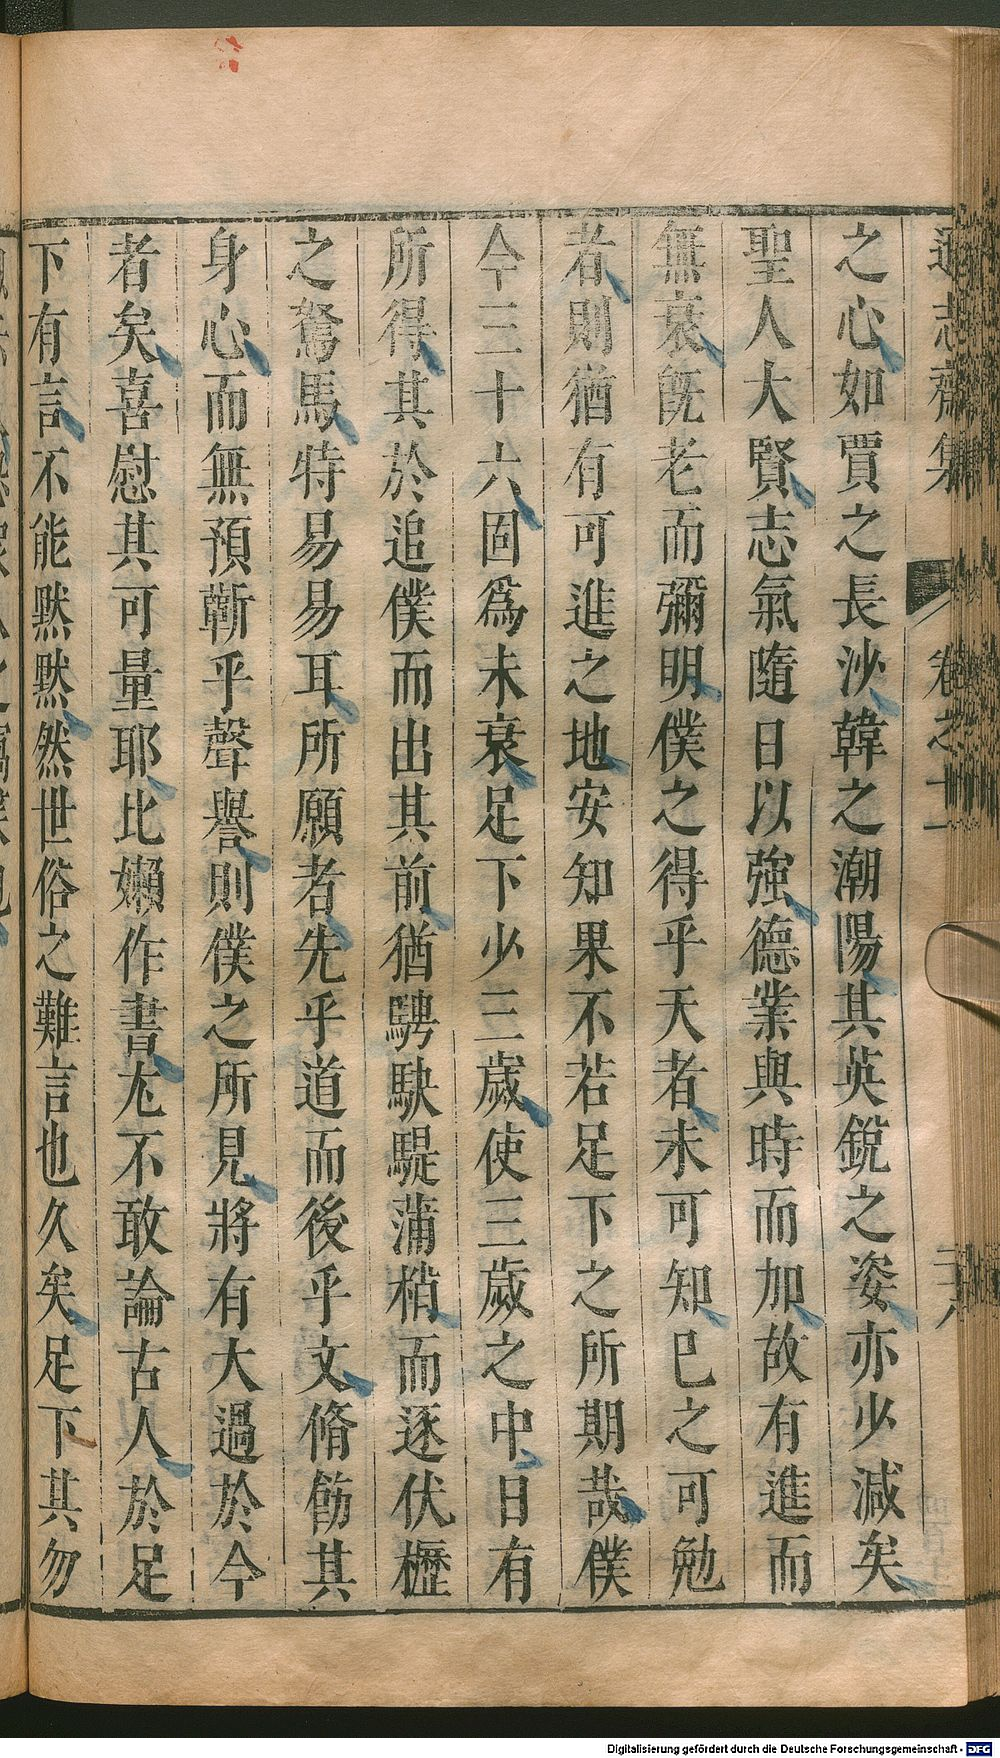 遜志齋集 卷之十一
之心如賈之長沙韓之潮陽其英銳之姿亦少減矣
聖人大賢志氣隨日以強德業與時而加故有進而
無衰旣老而彌明僕之得乎天者未可知巳之可勉
者則猶有可進之地安知果不若足下之所期哉僕
今三十六固爲未衰足下少三歲使三歲之中日有
所得其於追僕而出其前猶騁駃騠蒲梢而逐伏櫪
之駑馬特易易耳所願者先乎道而後乎文脩飭其
身心而無預蘄乎聲譽則僕之所見將有大過於今
者矣喜慰其可量耶比嬾作書尢不敢論古人於足
下有言不能黙黙然世俗之難言也久矣足下其勿
Digitalisierung gefördert durch die Deutsche Forschungsgemeinschaft - DFG